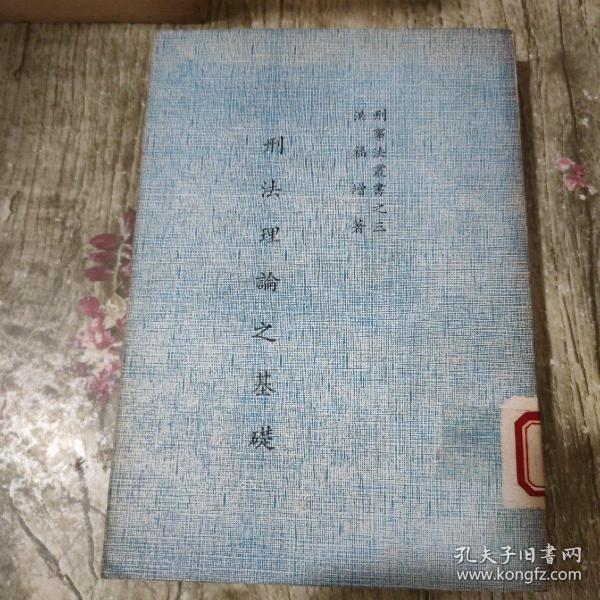 刑事法叢書之三
洪福增著
刑法理論之基礎
孔夫子旧书网
www.kongfz.com